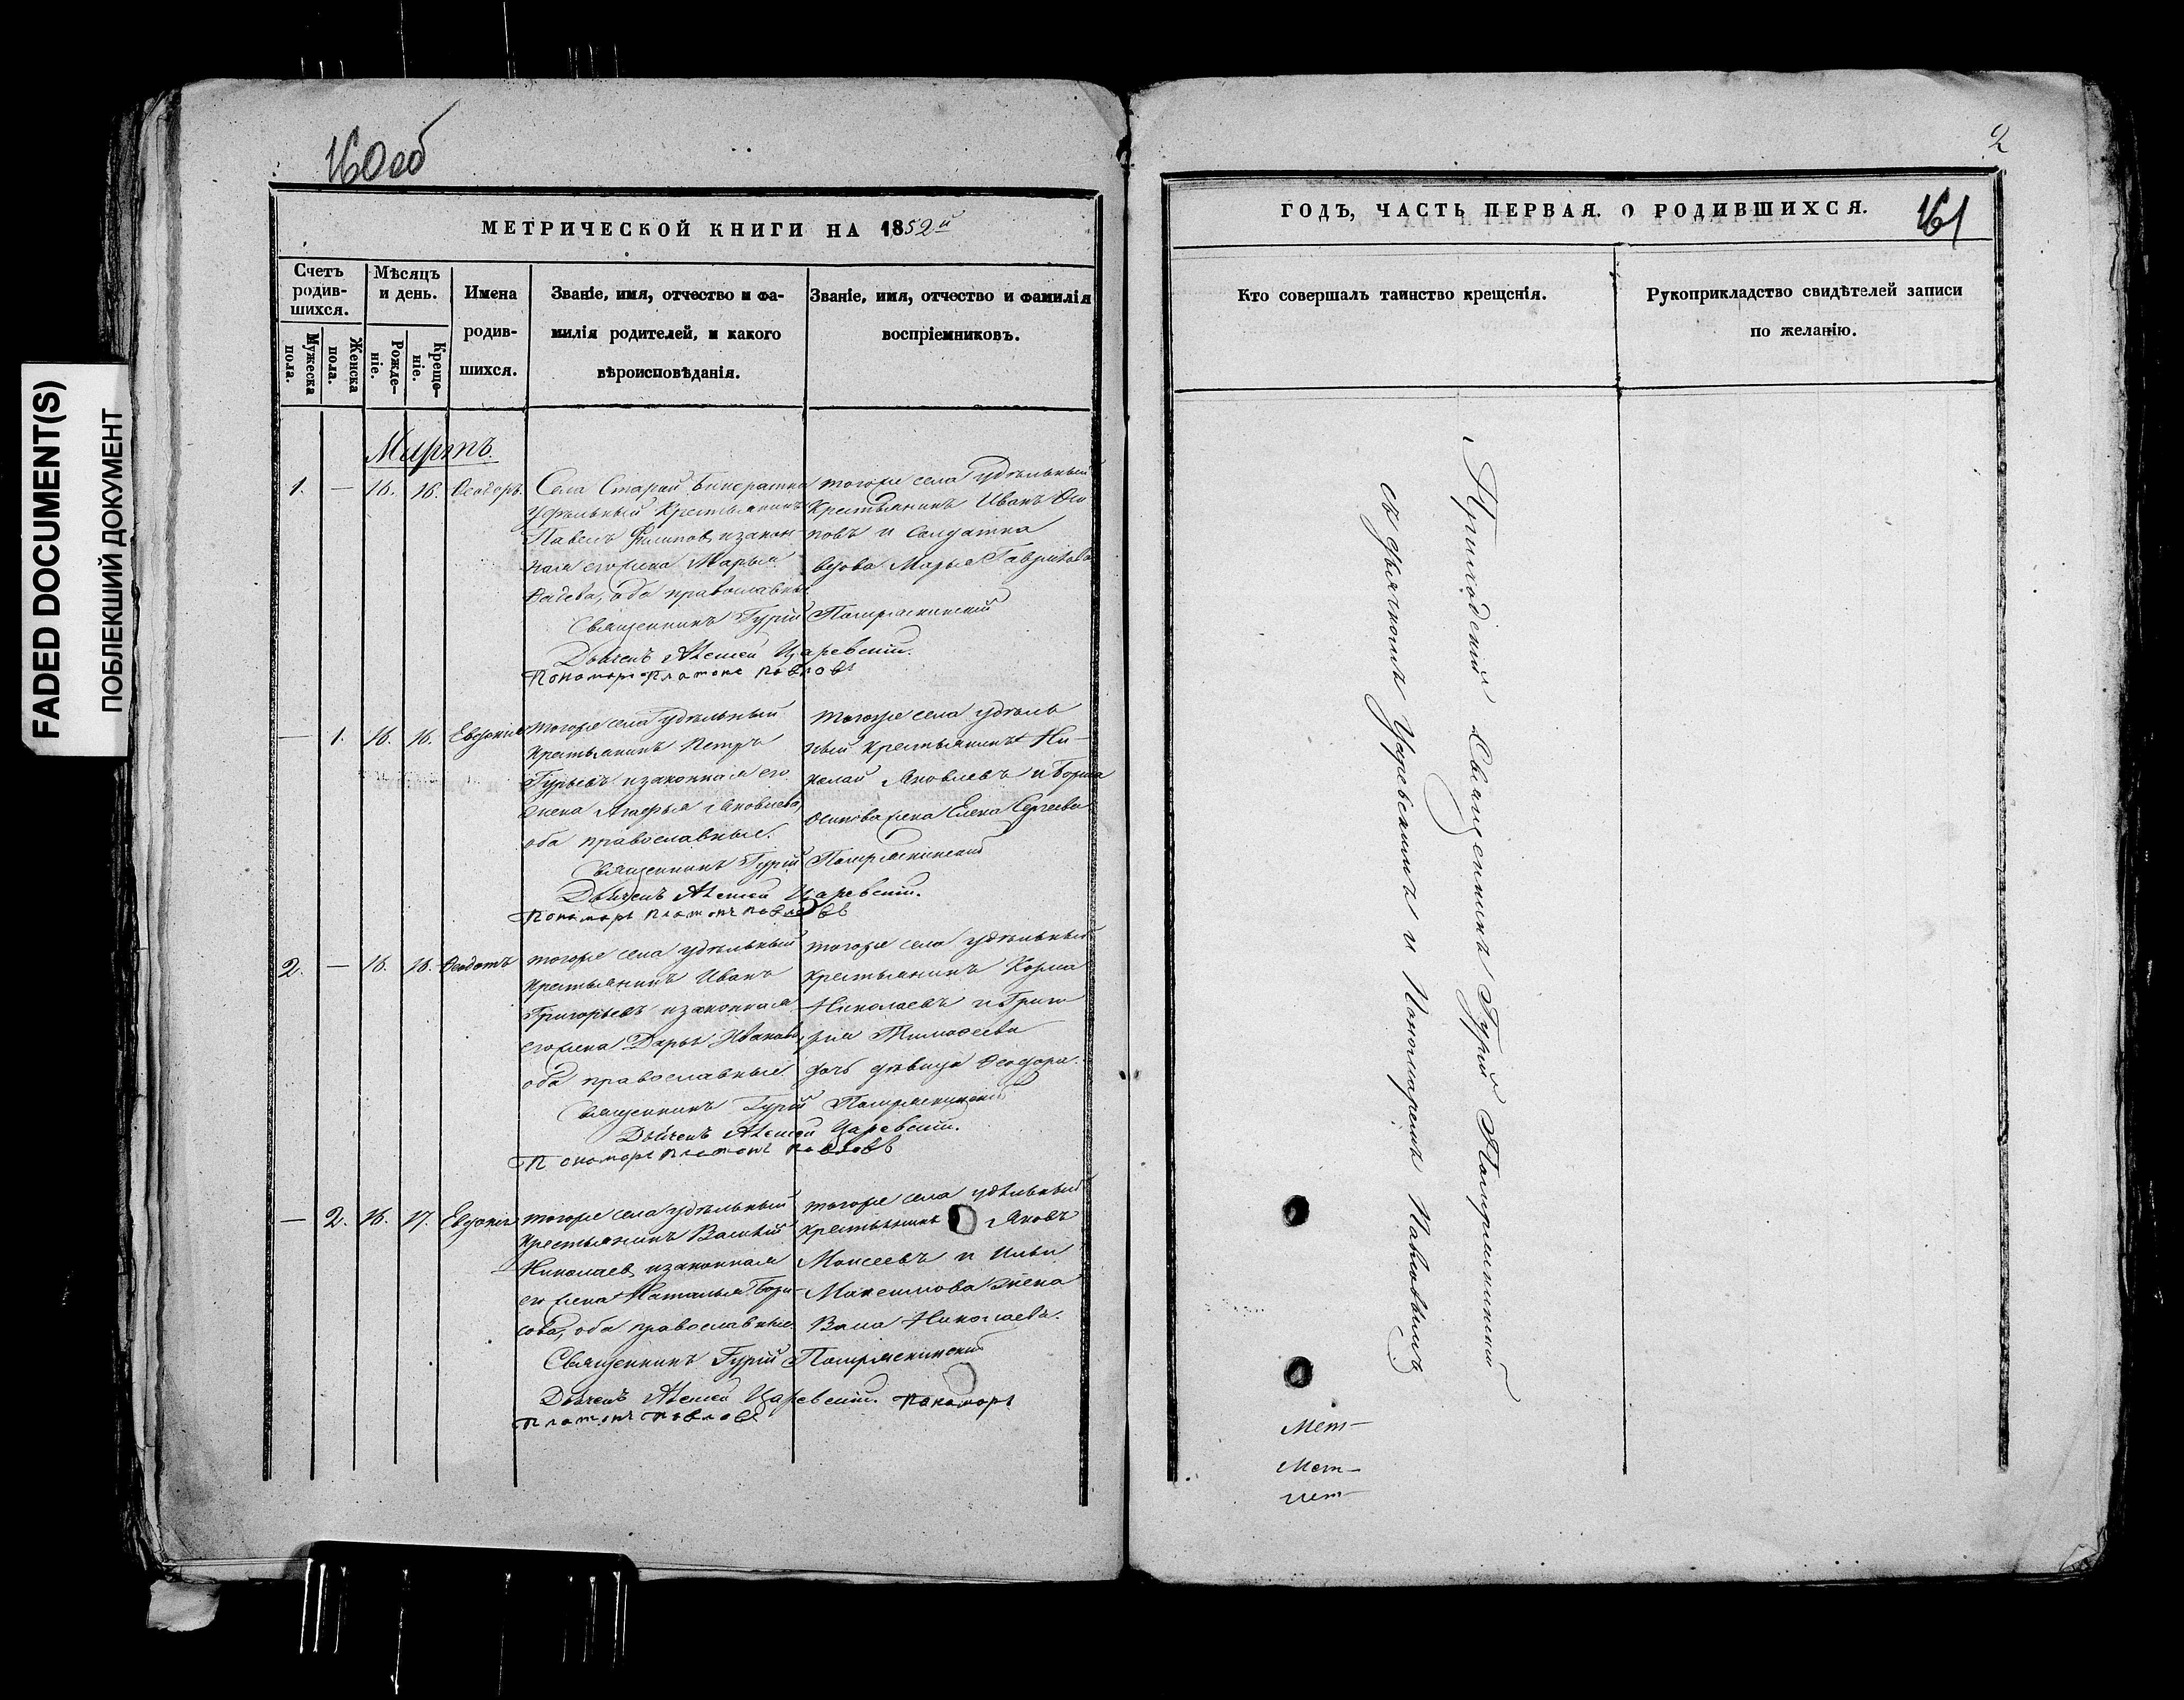 FADED DOCUMENT(S)
ПОБЛЕКШИЙ ДОКУМЕНТ
160 об
МЕТРИЧЕСКОЙ КНИГИ НА 1852й
Счетъ родив-шихся.
Мужеска пола.
Женска пола.
Мѣсяцъ и день.
Рожде-ніе.
Креще-ніе.
Имена
родив-
шихся.
Званіе, имя, отчество и фа-
милія родителей, и какого
вѣроисповѣданія.
Званіе, имя, отчество и фамилія
воспріемниковъ.
Мартъ.
1. — 16. 16. Ѳеодоръ.
Села Старой
удѣльный крестьянинъ
Павелъ Филиповъ и закон
ная его жена Марья
оба православные
тогоже села удѣльный
крестьянинъ Иванъ Оси
повъ и солдатка
вдова Марья Гаврилова
Священникъ Гурій
Дьячекъ Алексей Царевскій.
Пономарь Платонъ Павловъ
— 1. 16. 16. Евдокія
тогоже села удѣльный
крестьянинъ Петръ
Гурьевъ и законная его
жена Яковлева,
оба православные.
тогоже села удѣль
ный крестьянинъ Ни-
колай Яковлевъ и
Осипова жена Елена Сергеева
Священникъ Гурій
Дьячекъ Алексей Царевскій.
Пономарь Платонъ Павловъ
2. — 16. 16. Ѳеодотъ
тогоже села удѣльный
крестьянинъ Иванъ
Григорьевъ и законная
его жена Дарья Иванова,
оба православные.
тогоже села удѣльный
крестьянинъ Козма
Николаевъ и
Тимоѳеева
дочь дѣвица Ѳеодора.
Священникъ Гурій
Дьячекъ Алексей Царевскій.
Пономарь Платонъ Павловъ
— 2. 16. 17. Евдокія
тогоже села удѣльный
крестьянинъ Василій
Николаевъ и законная
его жена Наталья Бори-
сова, оба православные
тогоже села удѣльный
крестьянинъ Яковъ
Моисеевъ и Ильи
Максимова жена
Васса Николаева.
Священникъ Гурій
Дьячекъ Алексей Царевскій. Пономарь
Платонъ Павловъ
2
ГОДЪ, ЧАСТЬ ПЕРВАЯ. О РОДИВШИХСЯ.
161
Кто совершалъ таинство крещенія.
Рукоприкладство свидѣтелей записи
по желанію.
Приходскій Священникъ Гурій
съ дьячкомъ Царевскимъ и Пономаремъ Павловымъ